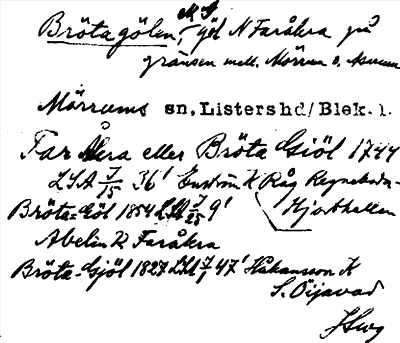 Brötagölen, göl N Faråkra på
gränsen mell. Mörrum o.
Mörrums sn, Listershd/Blek.l.
Far åkra eller Bröta Giöl 1744
LSA 7/15 36' Enström K Råg
Bröta-Göl 1854 LSA 7/25 9'
Abelin R Faråkra
Bröta-Gjöl 1827 LSA 7/1 47' Håkansson K
S. Öijavad